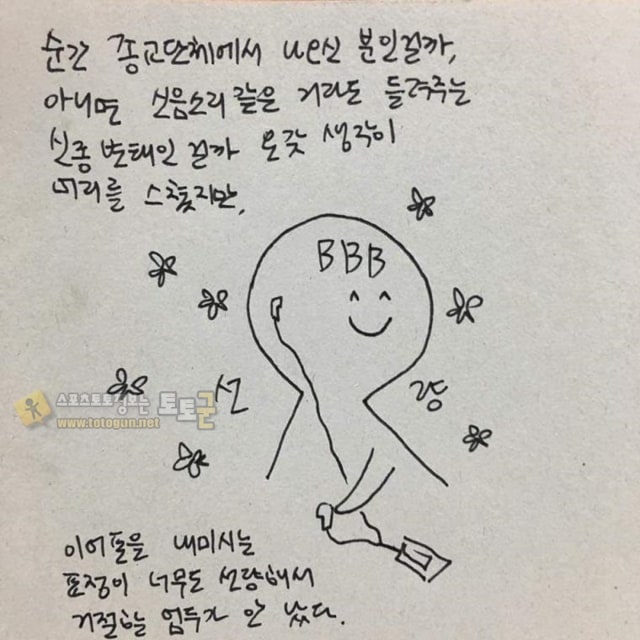 순간 종교단체에서 나오신 분인걸까,
아니면 신음소리 같은 거라도 들려주는
신종 변태인 걸까 온갖 생각이
머리를 스쳤지만,
BBB
선 량
스포츠토토정보는 토토군
www.totogun.net
이어폰을 내미시는
표정이 너무도 선량해서
거절할 엄두가 안 났다.